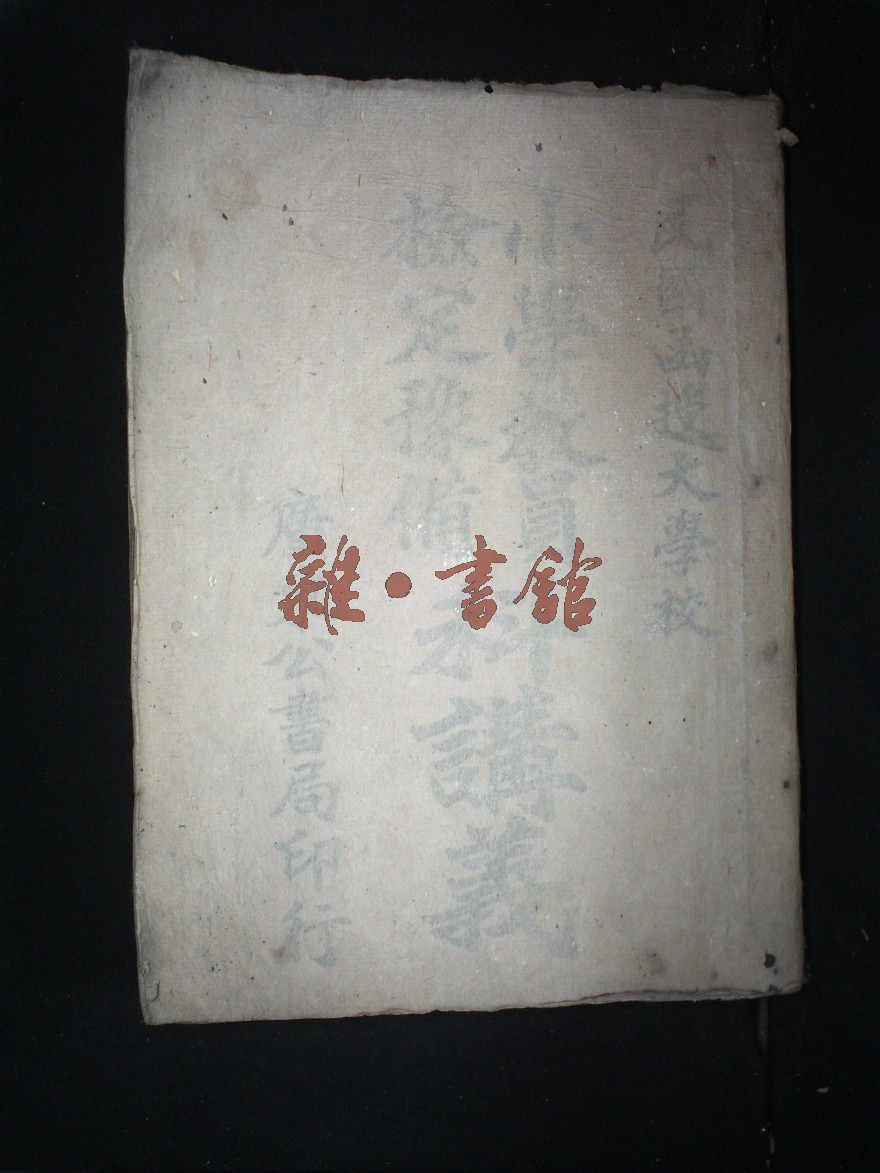 民國函授大學校
小學教員
檢定豫備
科講義
廣 公書局印行
雜·書館